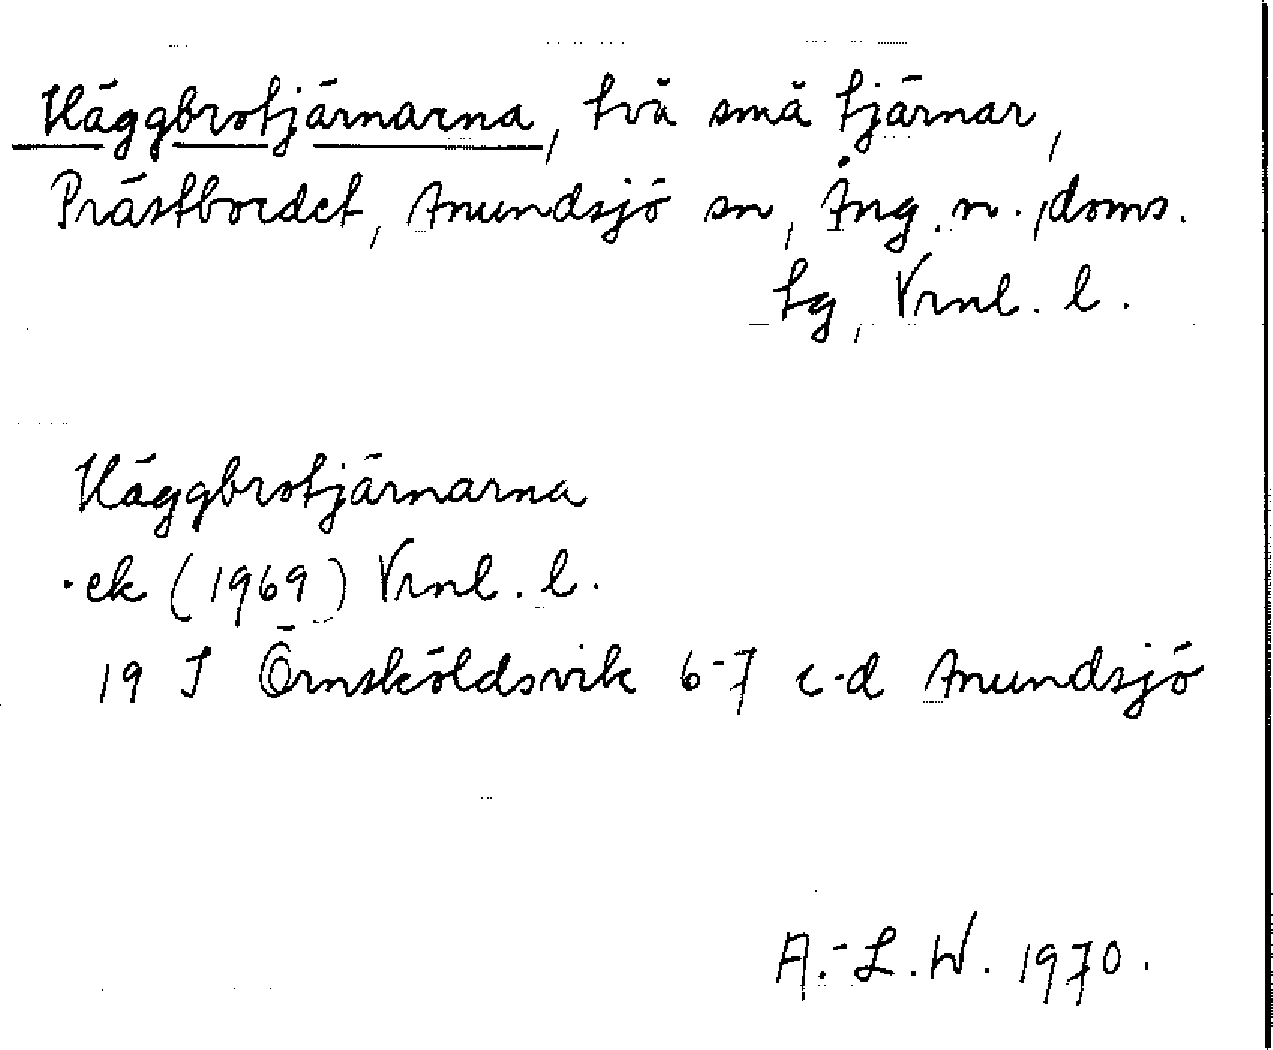 Häggbrotjärnarna, två små tjärnar,
Prästbordet, Anundsjö sn, Ång. n., doms.
tg, Vrnl. l.
Häggbrotjärnarna
ek (1969) Vrnl. l.
19 J Örnsköldsvik 6-7 c-d Anundsjö
A.-L.W. 1970.